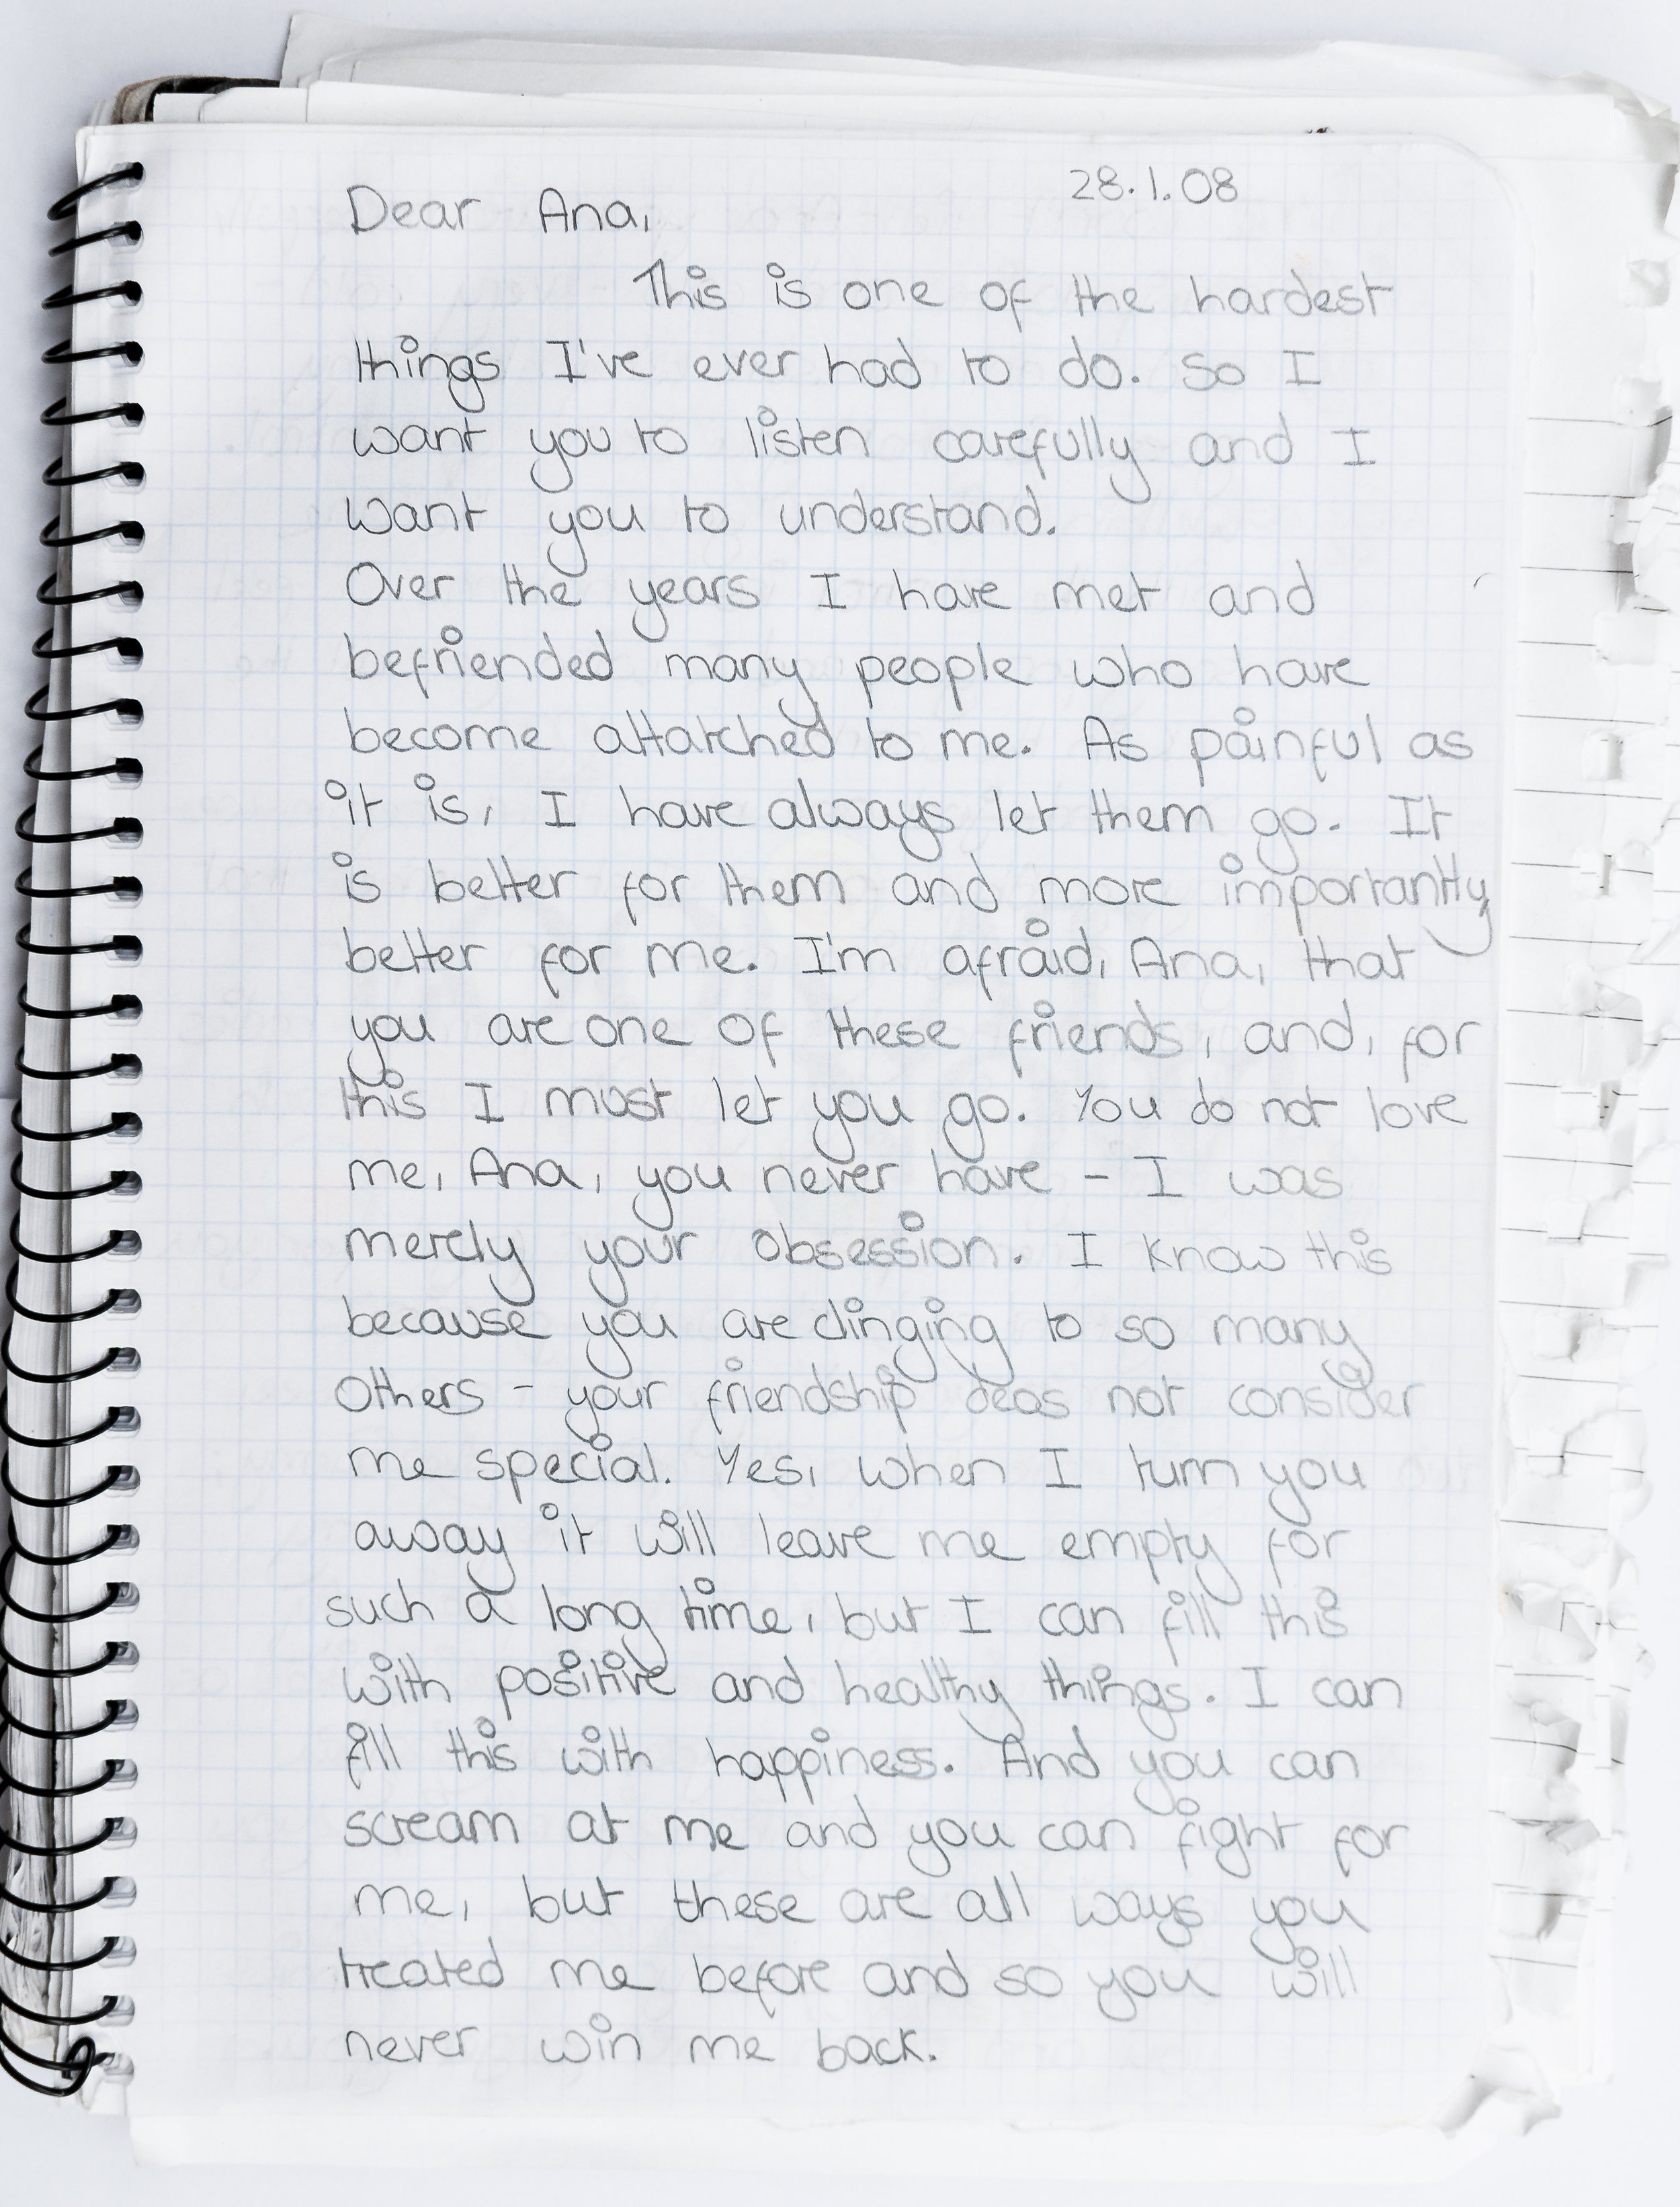 28.1.08
Dear Ana,
This is one of the hardest
things I've ever had to do. So I
want you to listen carefully and I
want you to understand.
Over the years I have met and
befriended many people who have
become attatched to me. As painful as
it is, I have always let them go. It
is better for them and more importantly
better for me. I'm afraid, Ana, that
you are one of these friends, and, for
this I must let you go. You do not love
me, Ana, you never have - I was
merely your obsession. I know this
because you are clinging to so many
others - your friendship deos not consider
me special. Yes, when I turn you
away it will leave me empty for
such a long time, but I can fill this
with positive and healthy things. I can
fill this with happiness. And you can
scream at me and you can fight for
me, but these are all ways you
treated me before and so you will
never win me back.